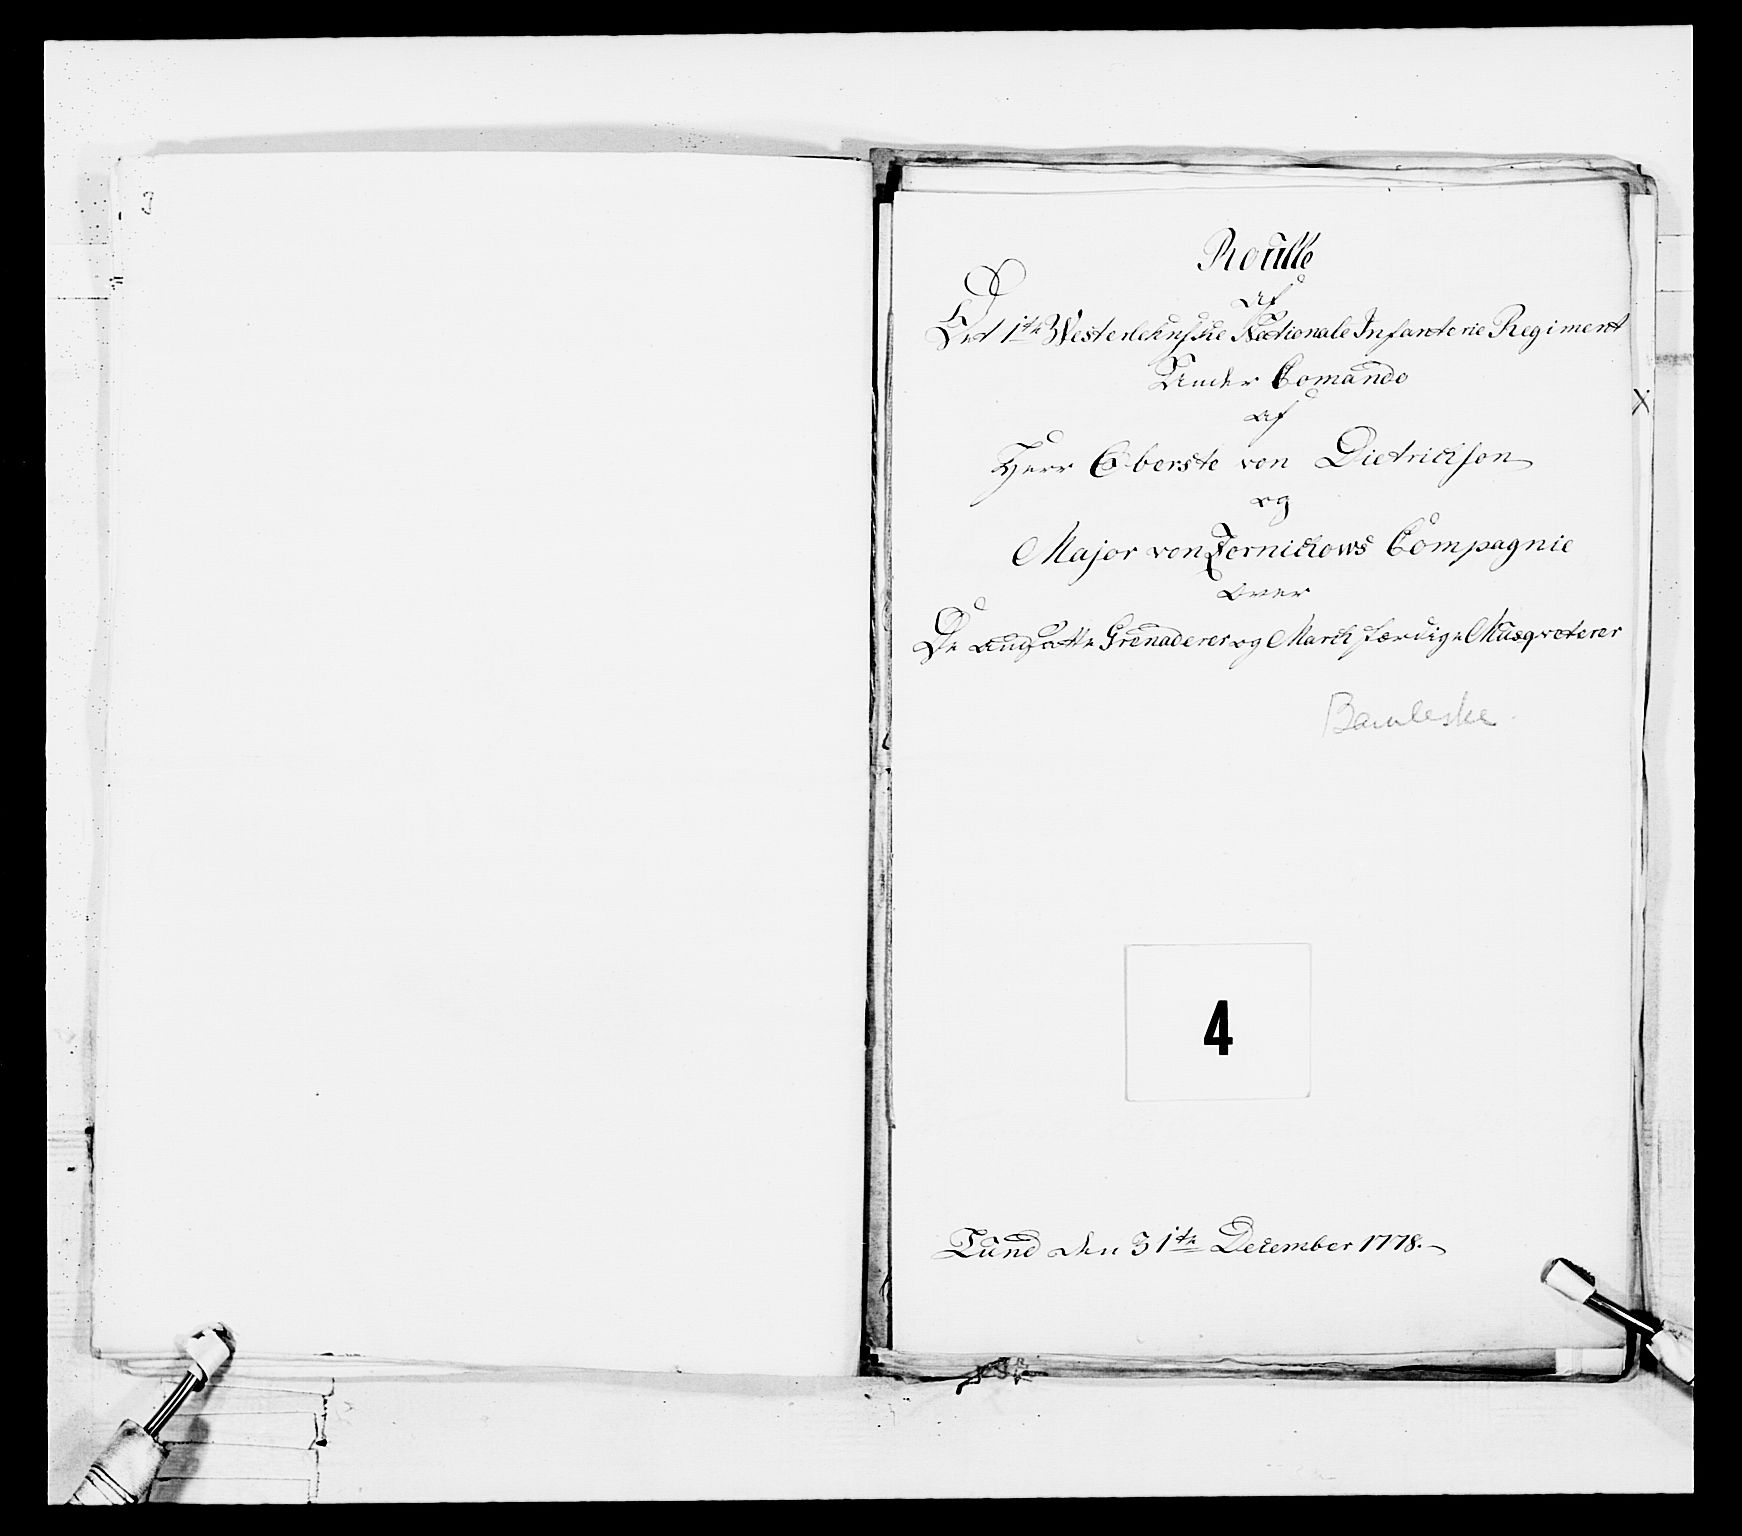 Roulle
af
Det 1te Westerlehnske Nationale Infanterie Regiment
Under Comando
af
Herr Oberste von Dietrichson
og
Major von Zernichows Compagnie
over
De ansatte Grenaderer og March færdige Musqveterer
Bambleske
4
Lund den 31te December 1778.